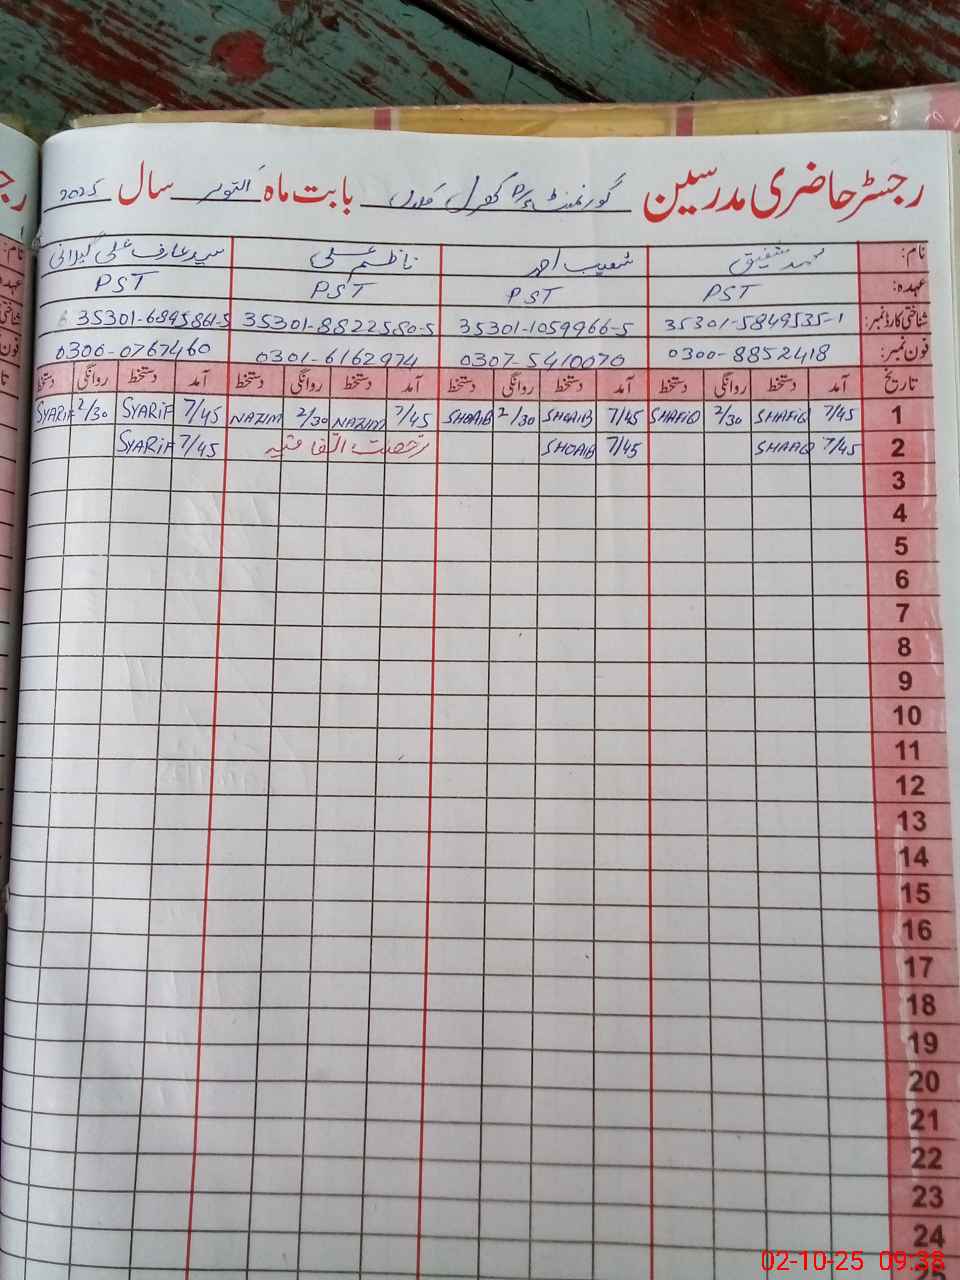 رجسٹر حاضری مدرسین گورنمنٹ بابت ماہ اکتوبر سال 2025
نام: محمد شفیق شعیب احمد ناظم علی سید عارف علی گیلانی
عہدہ: PST PST PST PST
شناختی کارڈ نمبر: 35301-5849535-1 35301-1059966-5 35301-8822580-5 35301-6895861-5
فون نمبر: 0300-8852418 0307-5410070 0301-6162974 0306-0767460
تاریخ آمد دستخط روانگی دستخط آمد دستخط روانگی دستخط آمد دستخط روانگی دستخط آمد دستخط روانگی دستخط
1 7/45 SHAFIQ 2/30 SHAFIQ 7/45 SHOAIB 2/30 SHOAIB 7/45 NAZIM 2/30 NAZIM 7/45 SYARIF 2/30 SYARIF
2 7/45 SHAFIQ 7/45 SHOAIB رخصت اتفاقیہ 7/45 SYARIF
3
4
5
6
7
8
9
10
11
12
13
14
15
16
17
18
19
20
21
22
23
24
25
02-10-25 09:38